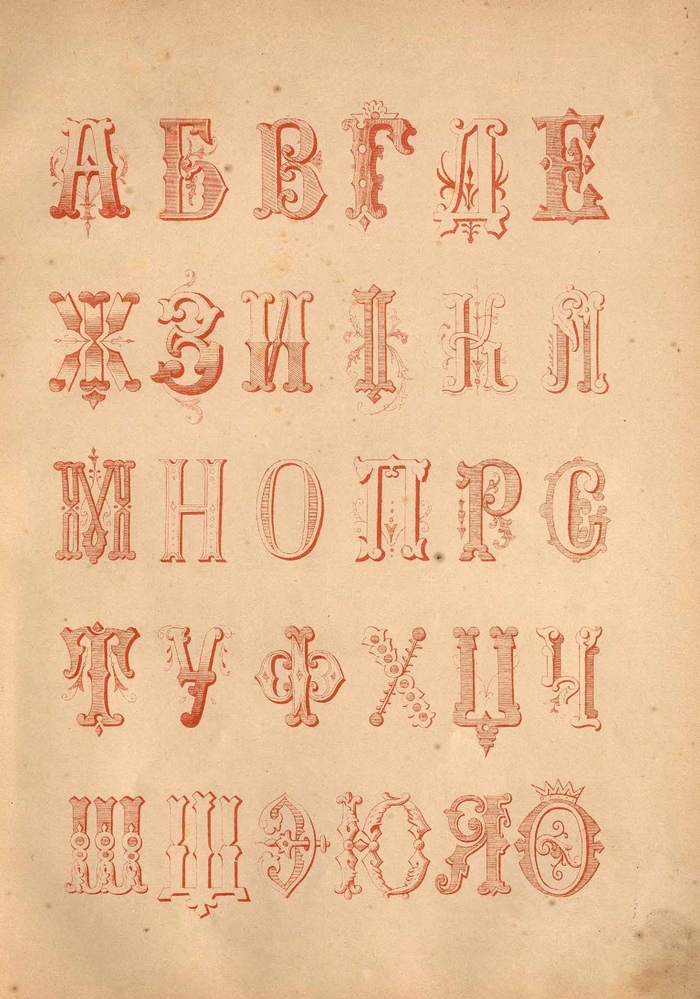 А Б В Г Д Е
Ж З И І К Л
М Н О П Р С
Т У Ф Х Ц Ч
Ш Щ Э Ю Я Ѳ